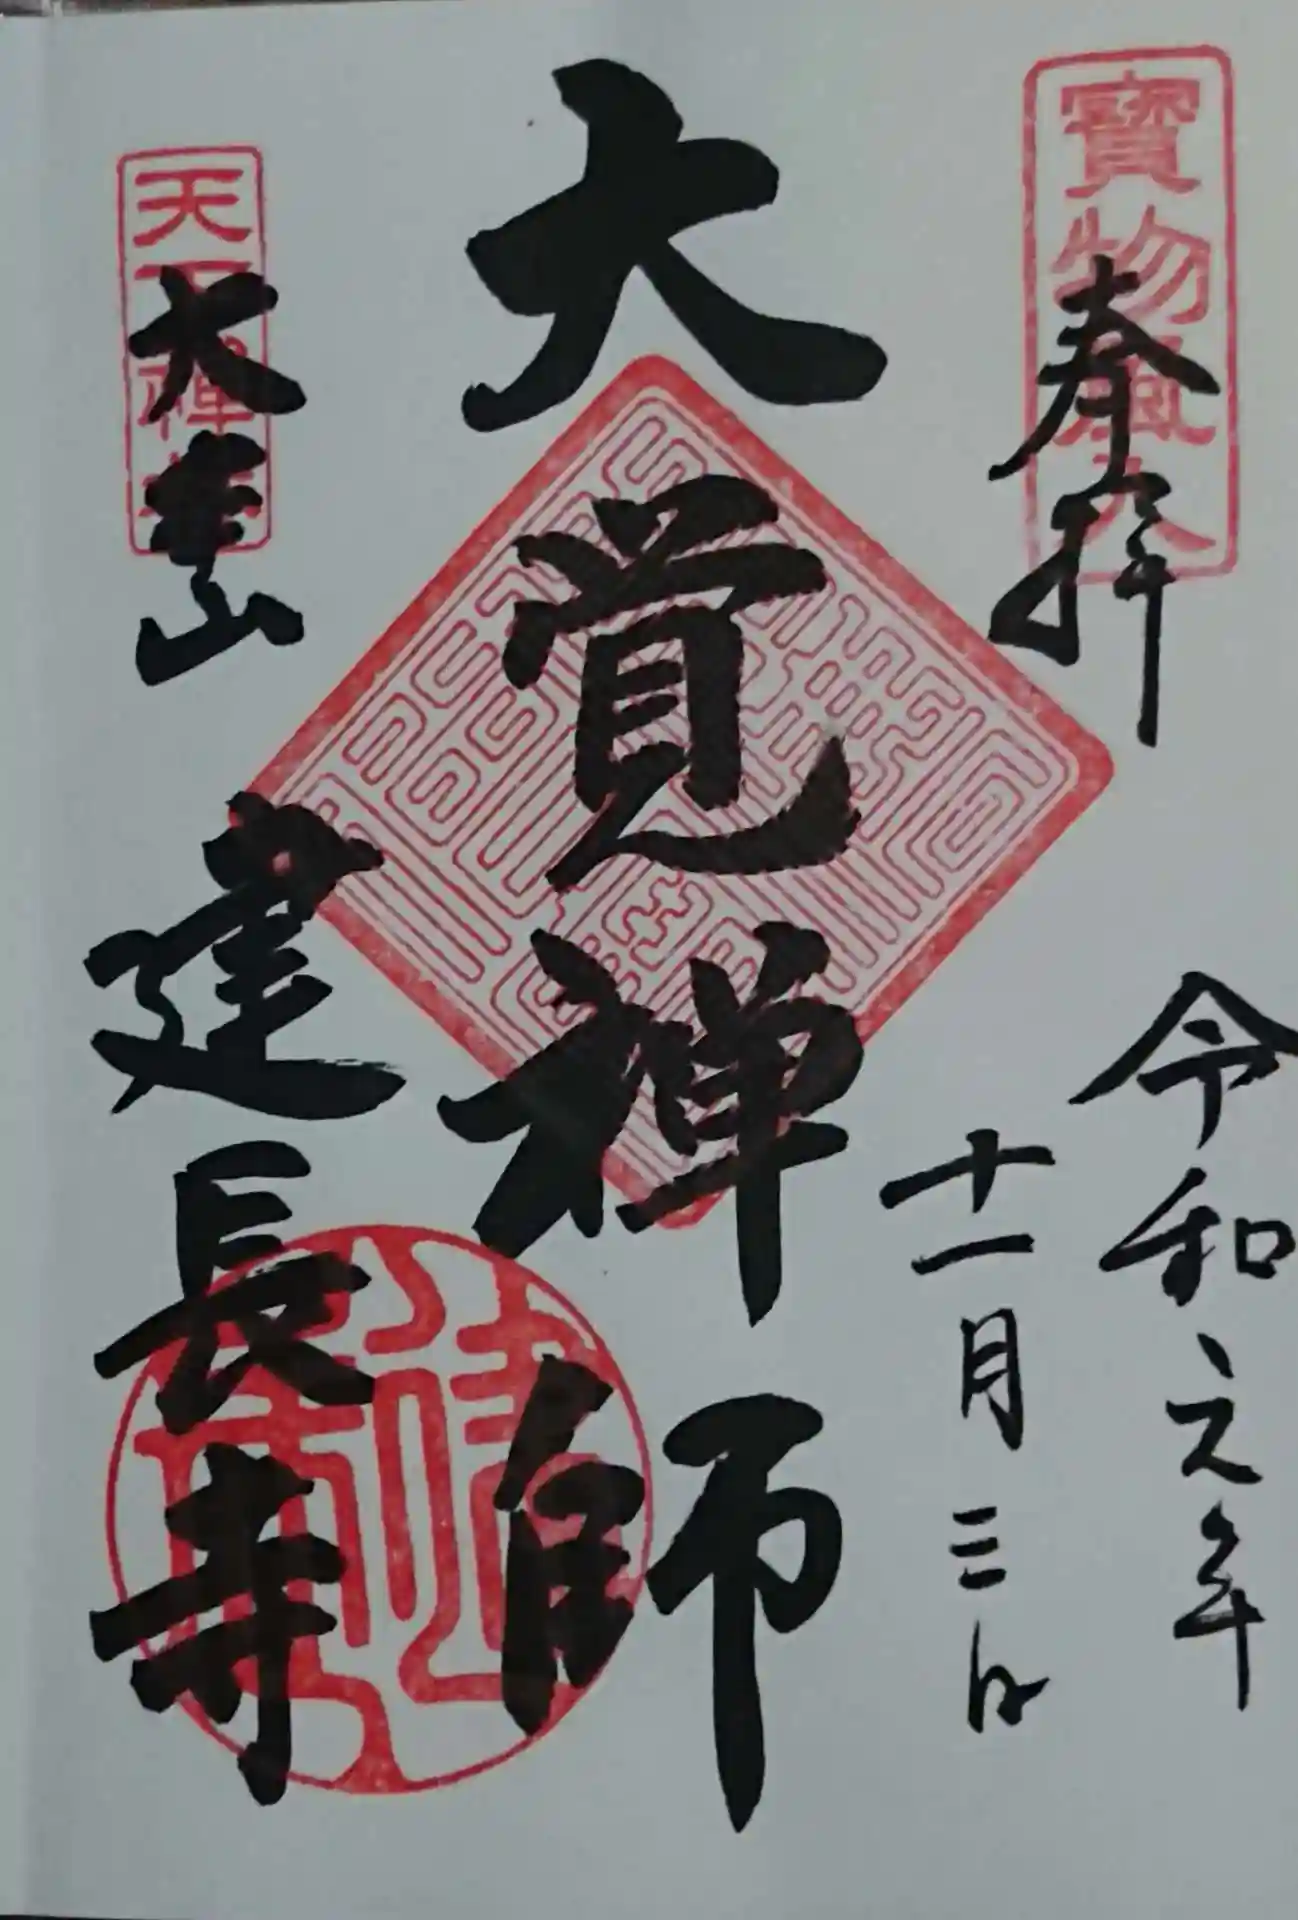 寶物風入
奉拝
令和元年
十一月三日
大覚禅師
天下禅林
大本山
建長寺